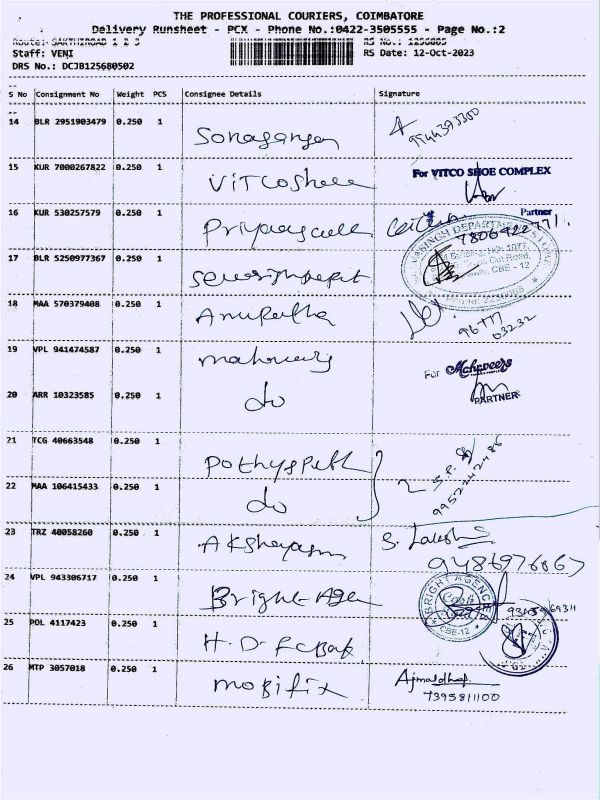 THE PROFESSIONAL COURIERS, COIMBATORE
Delivery Runsheet - PCX - Phone No.:0422-3505555 - Page No.:2
Route: SAKTHIROAD 1 2 3 RS No.: 1256805
Staff: VENI RS Date: 12-Oct-2023
DRS No.: DCJB125680502
S No Consignment No Weight PCS Consignee Details Signature
14 BLR 2951903479 0.250 1
9944393300
15 KUR 7000267822 0.250 1 VITCO
For VITCO SHOE COMPLEX
Partner
16 KUR 530257579 0.250 1
17 BLR 5250977367 0.250 1
CBE - 12
18 MAA 570379408 0.250 1 Anuratha
96777
03232
19 VPL 941474587 0.250 1
For Mahaveers
PARTNER
20 ARR 10323585 0.250 1 do
21 TCG 40663548 0.250 1 Pothys
S.P.
9952242486
22 MAA 106415433 0.250 1 do
23 TRZ 40058260 0.250 1 Akshayam S. Lakshmi
24 VPL 943306717 0.250 1 Bright Age
BRIGHT AGENCY
CBE-12
25 POL 4117423 0.250 1 H.D.FC Bak
26 MTP 3057018 0.250 1 mobifix
7395811100